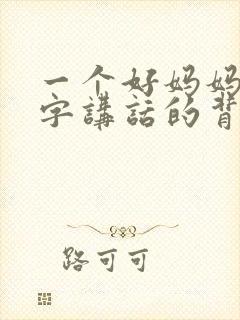 一个好妈妈
字講話的背
路可可